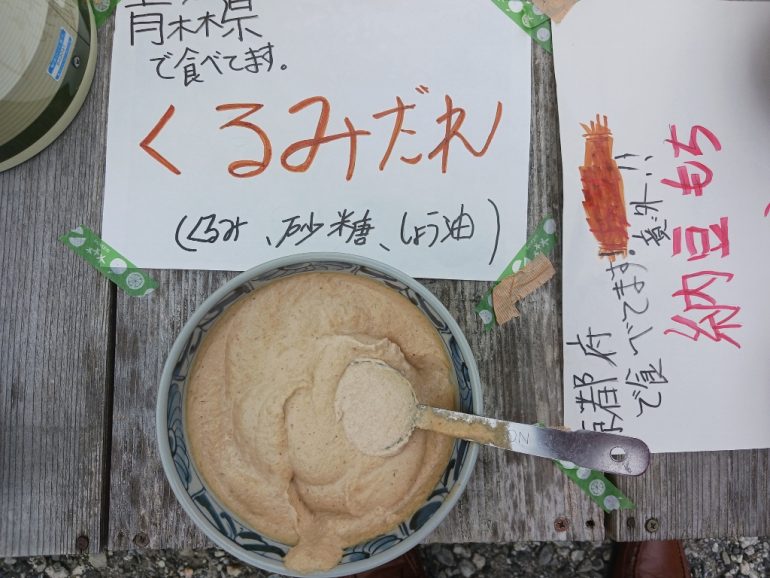 青森県
で食べてます。
くるみだれ
(くるみ、砂糖、しょう油)
京都府
で食べてます。意外!!
納豆もち